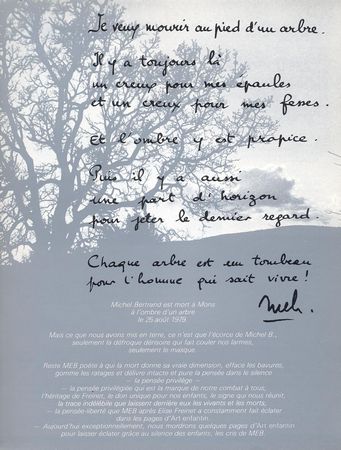 Je veux mourir au pied d'un arbre.
Il y a toujours là
un creux pour mes épaules
et un creux pour mes fesses.
et l'ombre y est propice.
Puis il y a aussi
une part d'horizon
pour jeter le dernier regard.
Chaque arbre est un tombeau
pour l'homme qui sait vivre !
Meb.
Michel Bertrand est mort à Mons
à l'ombre d'un arbre
le 25 août 1979
Mais ce que nous avons mis en terre, ce n'est que l'écorce de Michel B.,
seulement la défroque dérisoire qui fait couler nos larmes,
seulement le masque.
Reste MEB poète à qui la mort donne sa vraie dimension, efface les bavures,
gomme les ratages et délivre intacte et pure la pensée dans le silence
— la pensée privilège —
— la pensée privilégiée qui est la marque de notre combat à tous,
l'héritage de Freinet, le don unique pour nos enfants, le signe qui nous réunit,
la trace indélébile que laissent derrière eux les vivants et les morts,
— la pensée-liberté que MEB après Elise Freinet a constamment fait éclater
dans les pages d'Art enfantin.
— Aujourd'hui exceptionnellement, nous mordrons quelques pages d'Art enfantin
pour laisser éclater grâce au silence des enfants, les cris de MEB.